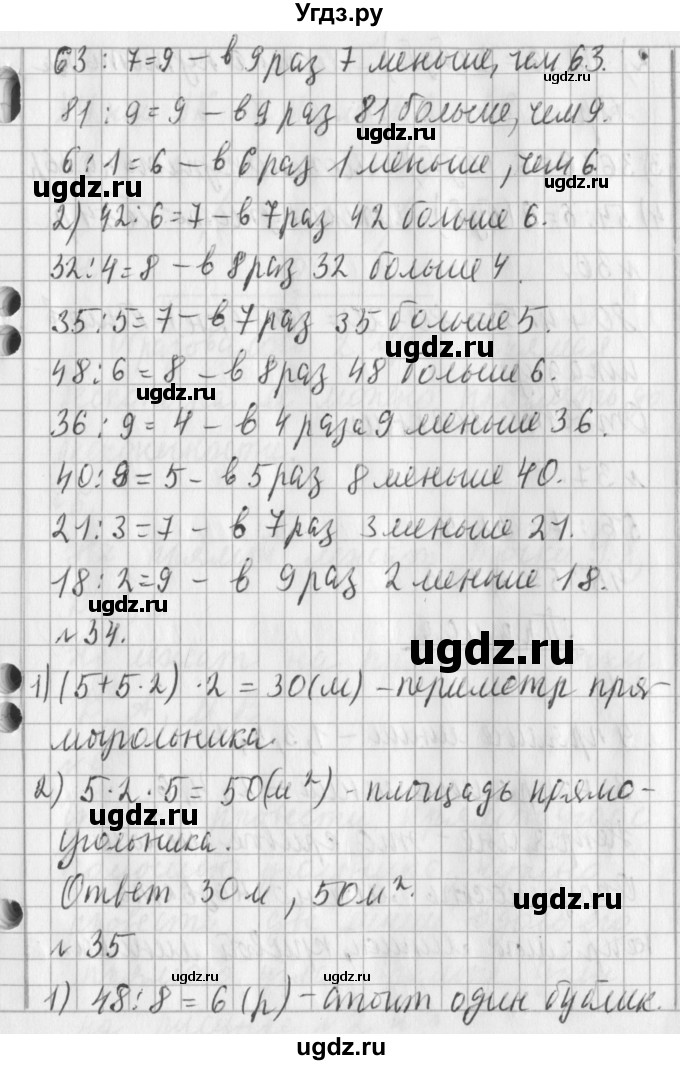 Угдз.ру
63 : 7 = 9 – в 9 раз 7 меньше, чем 63.
81 : 9 = 9 – в 9 раз 81 больше, чем 9.
6 : 1 = 6 – в 6 раз 1 меньше, чем 6
2) 42 : 6 = 7 – в 7 раз 42 больше 6.
32 : 4 = 8 – в 8 раз 32 больше 4.
35 : 5 = 7 – в 7 раз 35 больше 5.
48 : 6 = 8 – в 8 раз 48 больше 6.
36 : 9 = 4 – в 4 раза 9 меньше 36.
40 : 8 = 5 – в 5 раз 8 меньше 40.
21 : 3 = 7 – в 7 раз 3 меньше 21.
18 : 2 = 9 – в 9 раз 2 меньше 18.
№ 34.
1) (5 + 5 · 2) · 2 = 30 (м) – периметр пря-
моугольника.
2) 5 · 2 · 5 = 50 (м²) – площадь прямо-
угольника.
Ответ 30 м, 50 м².
№ 35
1) 48 : 8 = 6 (р) – стоит один бублик.
ugdz.ru